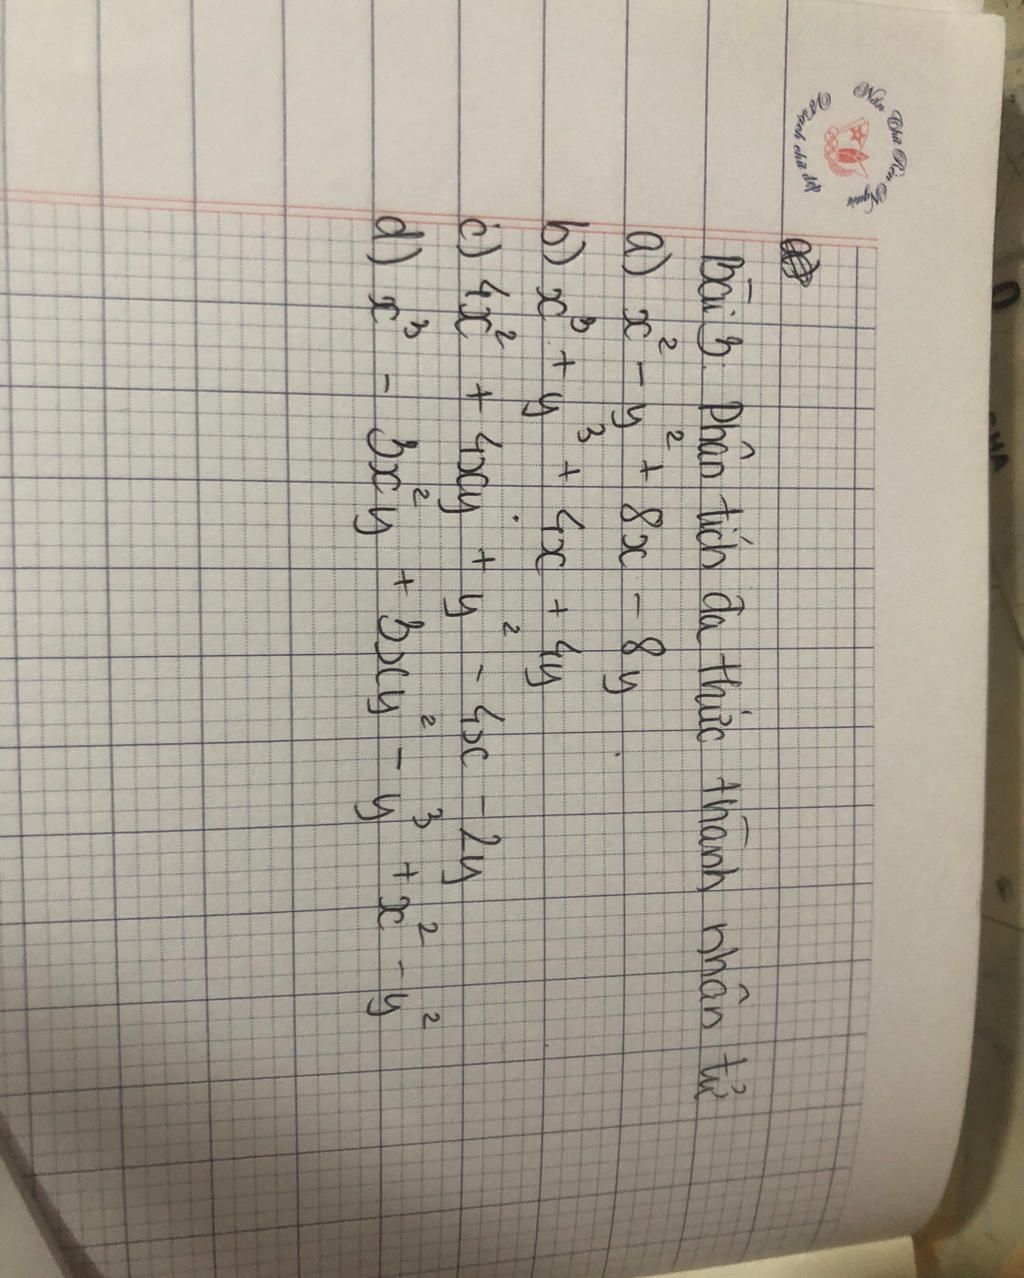 Nâng Chữ Rèn Người
Bài 3: Phân tích đa thức thành nhân tử
a) x² - y² + 8x - 8y
b) x³ + y³ + 4x + 4y
c) 4x² + 4xy + y² - 4x - 2y
d) x³ - 3x²y + 3xy² - y³ + x² - y²